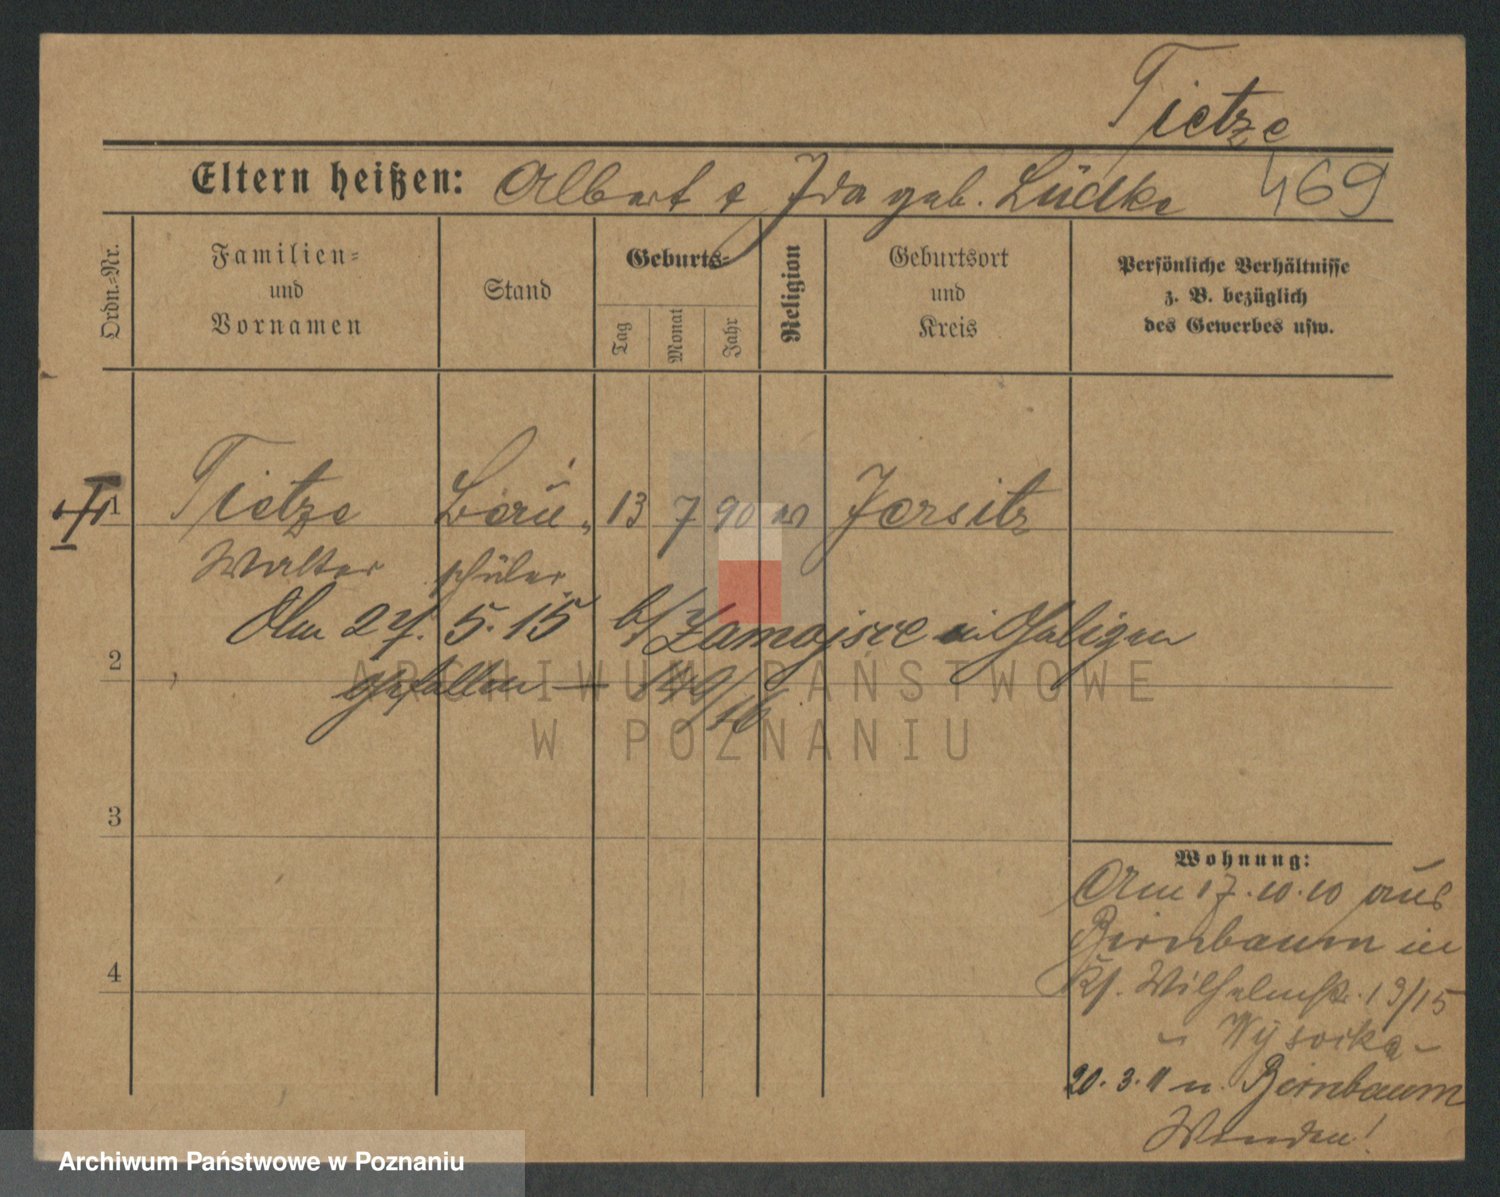 Tietze
Eltern heißen: Albert & Ida geb. Lüdke 469
Ordn.-Nr.
Familien-
und
Vornamen
Stand
Geburts-
Tag
Monat
Jahr
Religion
Geburtsort
und
Kreis
Persönliche Verhältnisse
z. B. bezüglich
des Gewerbes usw.
1 Tietze Bau- 13 7 90 Jersitz
Walter schüler
Am 27. 5. 15 b/ Zamojsce in Galizien
2 gefallen — 149/16
ARCHIWUM PAŃSTWOWE
W POZNANIU
3
Wohnung:
Am 17.10.10 aus
Birnbaum in
4
Wilhelmstr. 13/15
- Wysocka -
20.3.11 n. Birnbaum
Wenden!
Archiwum Państwowe w Poznaniu